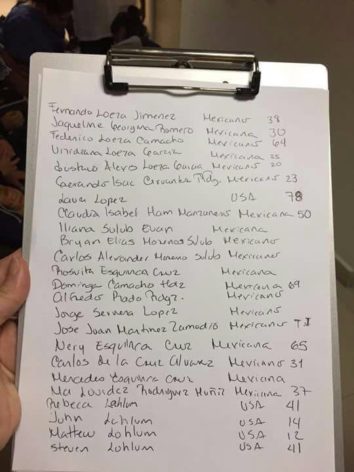 Fernando Loeza Jimenez Mexicano 38
Jaqueline Georgina Romero Mexicana 30
Federico Loeza Camacho Mexicano 64
Viridiana Loeza Garcia Mexicana 25
Gustavo Alexis Loeza Garcia Mexicano 20
Gerardo Isac Cervantes Rdg. Mexicano 23
Laura Lopez USA 78
Claudia Isabel Ham Manzanero Mexicana 50
Iliana Sulub Euan Mexicana
Bryan Elias Moreno Sulub Mexicano
Carlos Alexander Moreno Sulub Mexicano
Rosvita Esquinca Cruz Mexicana
Dominga Camacho Hdz Mexicana 69
Alfredo Prado Rodgz. Mexicano
Jorge Serrano Lopez Mexicano
Jose Joan Martinez Zamudio Mexicano
Nery Esquinca Cruz Mexicana 65
Carlos de la Cruz Alvarez Mexicano 31
Mercedes Esquinca Cruz Mexicana
Ma Lourdes Rodriguez Muñiz Mexicana 37
Rebecca Lohlum USA 41
John Lohlum USA 14
Mattew Lohlum USA 12
Steven Lohlum USA 41